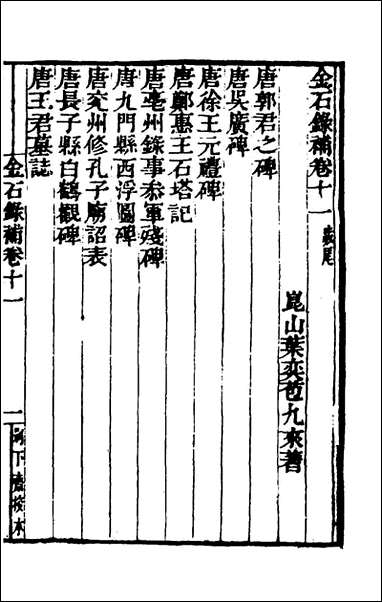 金石錄補卷十一
崑山葉奕苞九來著
唐郭君之碑
唐吳廣碑
唐徐王元禮碑
唐鄭惠王石塔記
唐亳州錄事叅軍殘碑
唐九門縣西浮圖碑
唐兖州修孔子廟詔表
唐長子縣白鶴觀碑
唐王君墓誌
金石錄補卷十一
一